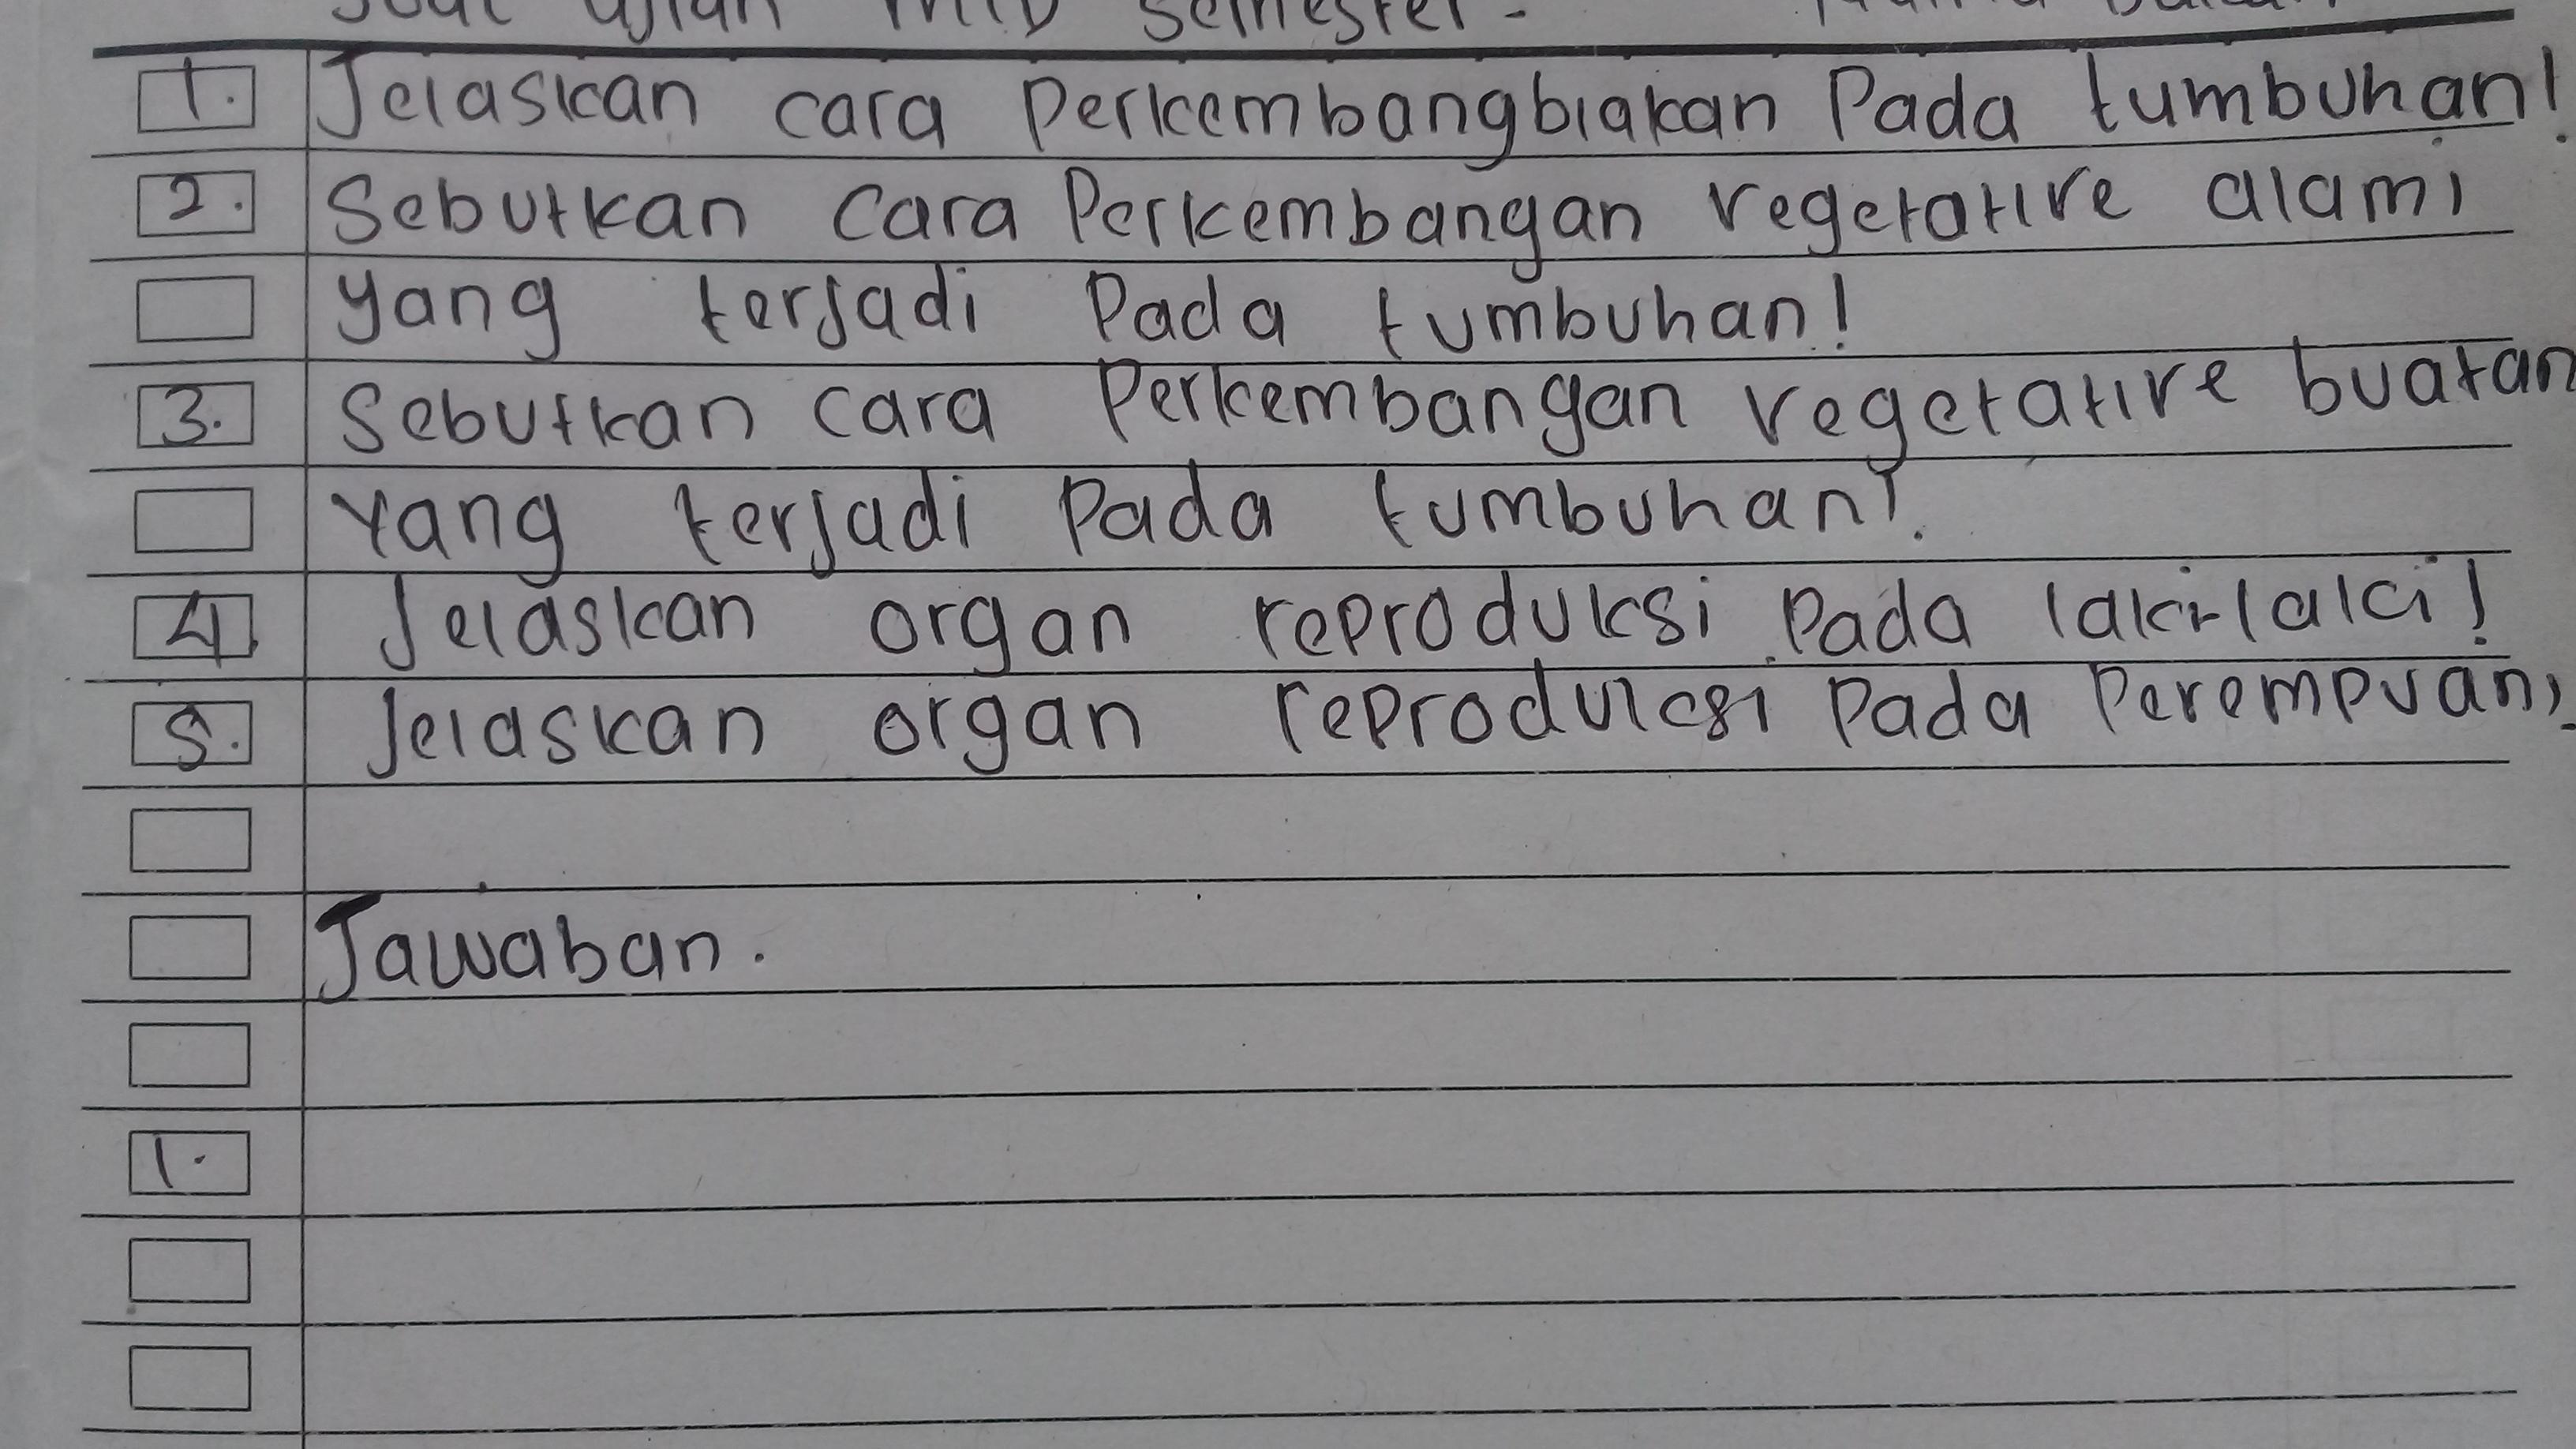 Soal ujian MID Semester.
1. Jelaskan cara Perkembangbiakan Pada tumbuhan!
2. Sebutkan cara Perkembangan vegetative alami
yang terjadi Pada tumbuhan!
3. Sebutkan cara Perkembangan vegetative buatan
Yang terjadi Pada tumbuhan!
4. Jelaskan organ reproduksi Pada laki-laki!
5. Jelaskan organ reproduksi Pada Perempuan!
Jawaban.
1.